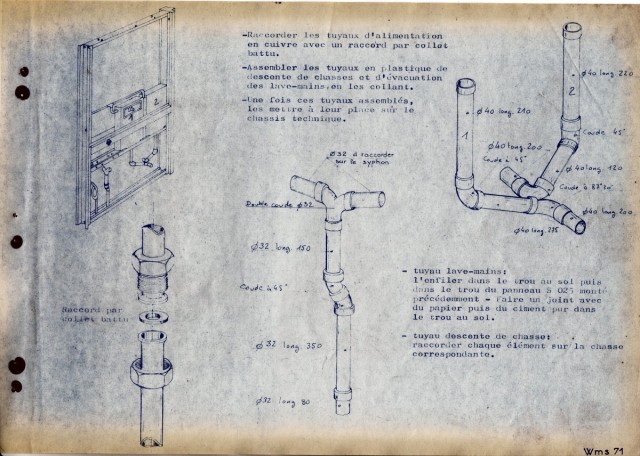 -Raccorder les tuyaux d'alimentation
en cuivre avec un raccord par collet
battu.
-Assembler les tuyaux en plastique de
descente de chasses et d'évacuation
des lave-mains, en les collant.
-Une fois ces tuyaux assemblés,
les mettre à leur place sur le
chassis technique.
1
2
ø32 à raccorder
sur le syphon
Double coude ø32
ø32 long. 150
Coude à 45°
ø32 long. 350
ø32 long. 80
Raccord par
collet battu
1
2
ø40 long. 220
ø40 long. 210
Coude 45°
ø40 long. 200
Coude à 45°
ø40 long. 120
Coude à 87°30'
ø40 long. 200
ø40 long. 275
- tuyau lave-mains:
l'enfiler dans le trou au sol puis
dans le trou du panneau S 025 monté
précédemment - Faire un joint avec
du papier puis du ciment pur dans
le trou au sol.
- tuyau descente de chasse:
raccorder chaque élément sur la chasse
correspondante.
Wms 71